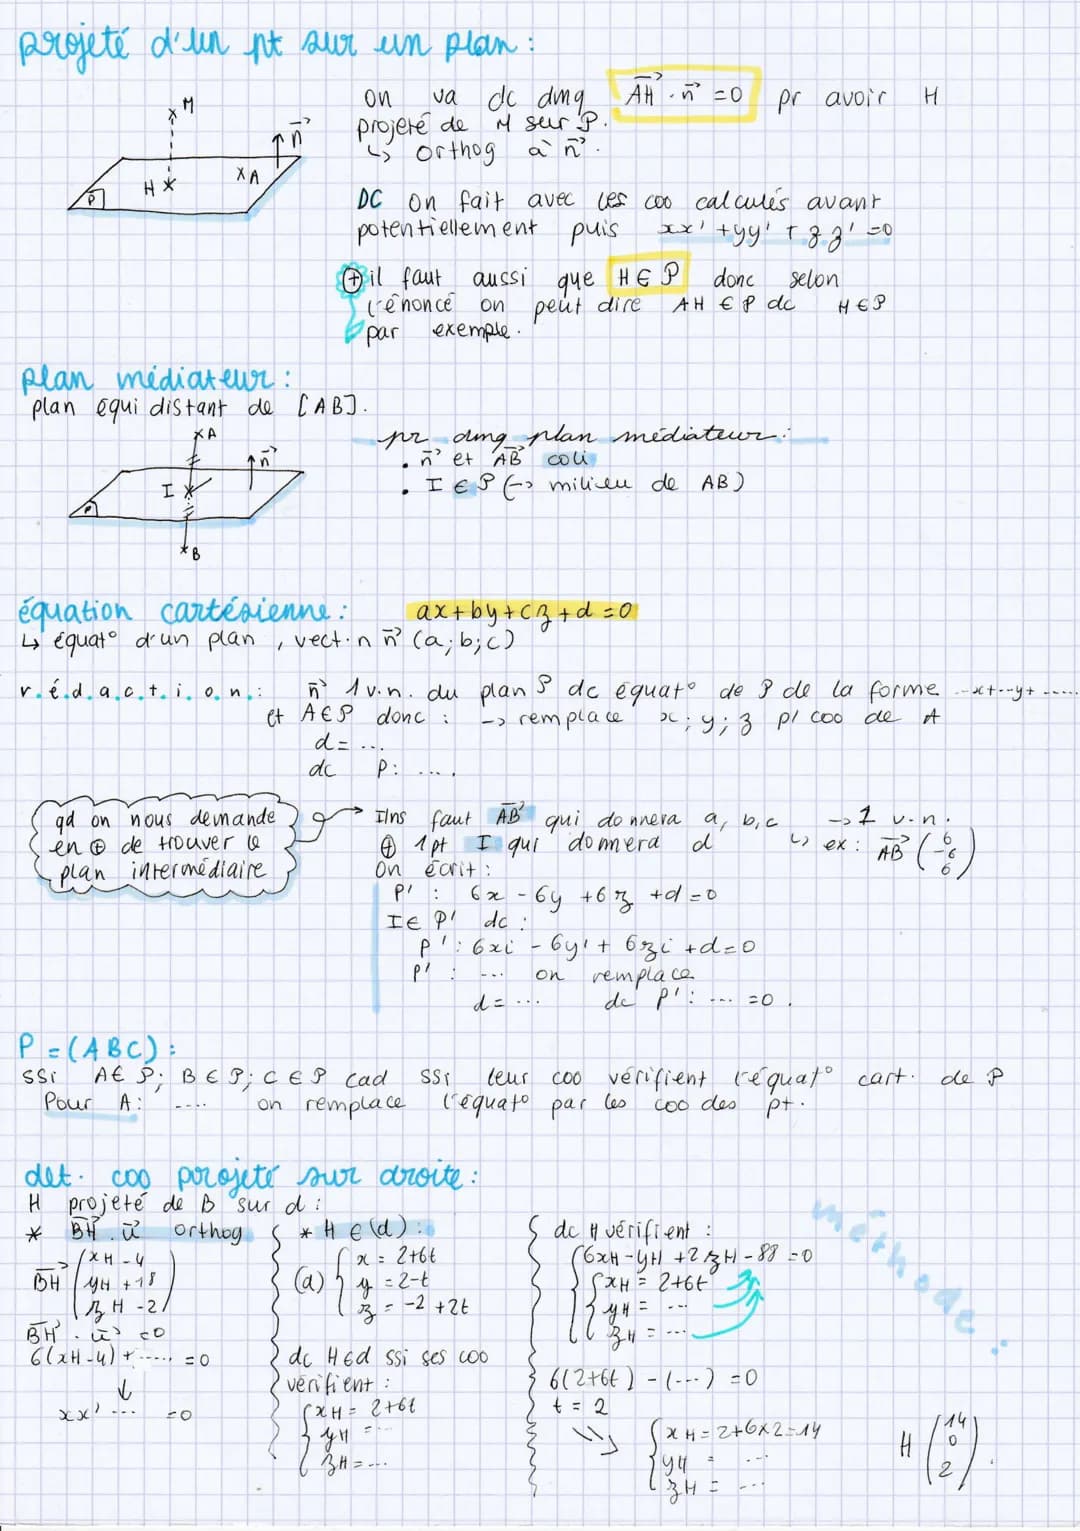 projeté d'un pt sur un plan :
M
n⃗
H
A
P
on va dc dmq AH⃗ . n⃗ = 0 pr avoir H
projeté de M sur P.
↳ orthog à n⃗.
DC on fait avec les coo calculés avant
potentiellement puis xx' + yy' + zz' = 0
⊕ il faut aussi que H ∈ P donc selon
l'énoncé on peut dire AH ∈ P dc H ∈ P
par exemple.
plan médiateur :
plan équidistant de [AB].
A
n⃗
I
P
B
pr dmq plan médiateur :
• n⃗ et AB⃗ coli
• I ∈ P (→ milieu de AB)
équation cartésienne : ax+by+cz+d=0
↳ équat° d'un plan, vect.n n⃗ (a;b;c)
r.é.d.a.c.t.i.o.n.: n⃗ 1 v.n. du plan P dc équat° de P de la forme ...x+...y+.....
et A∈P donc : → remplace x; y; z p/ coo de A
d= ...
dc P: ....
qd on nous demande
en ⊕ de trouver le
plan intermédiaire
Ilns faut AB⃗ qui donnera a, b, c → 1 v.n.
⊕ 1 pt I qui donnera d
↳ ex : AB⃗ (6 -6 6)
On écrit :
P' : 6x - 6y + 6z + d = 0
I ∈ P' dc :
P' : 6xi - 6yi + 6zi + d = 0
P' : ... on remplace
d = ... dc P' : ... = 0.
P = (ABC) :
ssi A∈P; B∈P; C∈P cad ssi leur coo vérifient l'équat° cart. de P
Pour A: .... on remplace l'équat° par les coo des pt.
det. coo projeté sur droite :
méthode :
H projeté de B sur d :
* BH⃗ . u⃗ orthog
BH⃗ (xH - 4
yH + 18
zH - 2)
BH⃗ . u⃗ = 0
6(xH-4) + ..... = 0
↓
xx' ... = 0
* H ∈ (d) :
(d) { x = 2+6t
y = 2-t
z = -2+2t
dc H∈d ssi ses coo
vérifient :
{ xH = 2+6t
yH = ...
zH = ...
dc H vérifient :
{ 6xH - yH + 2zH - 88 = 0
{ xH = 2+6t
yH = ...
zH = ...
6(2+6t) - (...) = 0
t = 2
{ xH = 2+6×2=14
yH = ...
zH = ...
H (14 0 2).